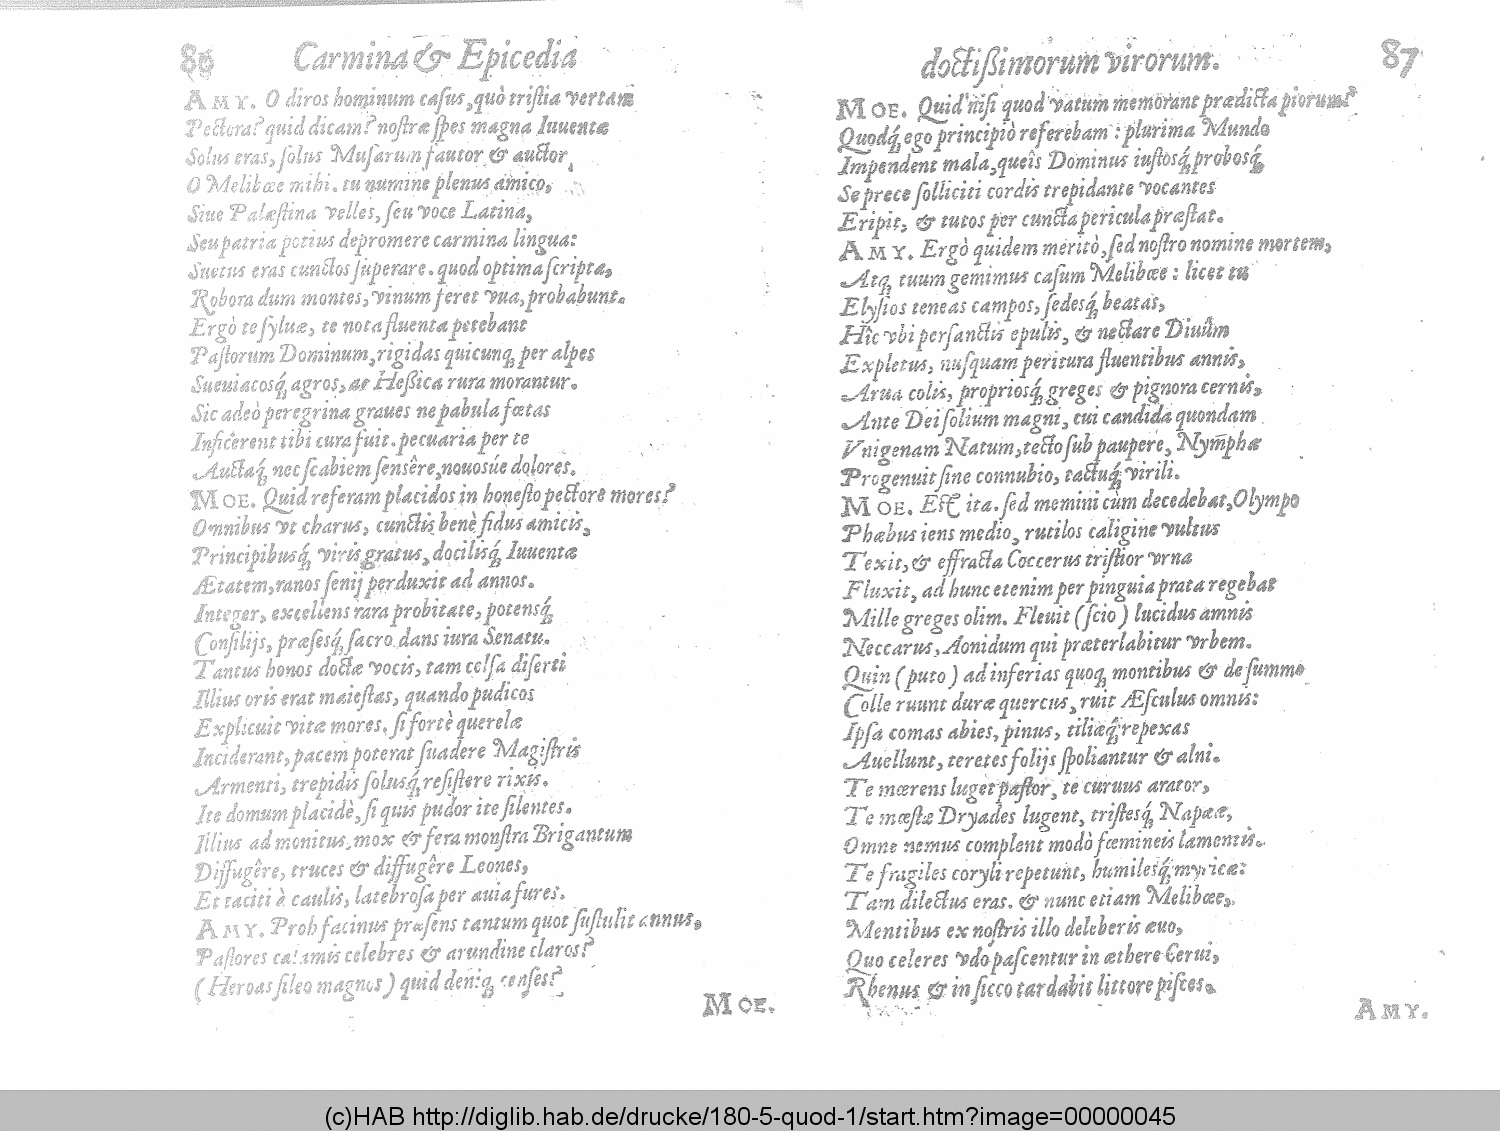 86 Carmina & Epicedia
AMY. O diros hominum casus, quò tristia vertam
Pectora? quid dicam? nostræ spes magna Iuuentæ
Solus eras, solus Musarum fautor & auctor,
O Melibœe mihi. tu numine plenus amico,
Siue Palæstina velles, seu voce Latina,
Seu patria potius depromere carmina lingua:
Suetus eras cunctos superare. quod optima scripta,
Robora dum montes, vinum feret vua, probabunt.
Ergò te syluæ, te nota fluenta petebant
Pastorum Dominum, rigidas quicunq; per alpes
Sueuiacosq́; agros, ac Hessica rura morantur.
Sic adeò peregrina graues ne pabula fœtas
Inficerent tibi cura fuit. pecuaria per te
Auctaq́; nec scabiem sensêre, nouosúe dolores.
MOE. Quid referam placidos in honesto pectore mores?
Omnibus vt charus, cunctis benè fidus amicis,
Principibusq́; viris gratus, docilisq́; Iuuentæ
Ætatem, ranos senij perduxit ad annos.
Integer, excellens rara probitate, potensq́;
Consilijs, præsesq́; sacro dans iura Senatu.
Tantus honos doctæ vocis, tam celsa diserti
Illius oris erat maiestas, quando pudicos
Explicuit vitæ mores. si fortè querelæ
Inciderant, pacem poterat suadere Magistris
Armenti, trepidis solusq́; resistere rixis.
Ite domum placidè, si quis pudor ite silentes.
Illius ad monitus, mox & fera monstra Brigantum
Diffugêre, truces & diffugêre Leones,
Et taciti à caulis, latebrosa per auia fures.
AMY. Proh facinus præsens tantum quot sustulit annus,
Pastores calamis celebres & arundine claros?
(Heroas sileo magnos) quid deniq; censes?
MOE.
doctissimorum virorum. 87
MOE. Quid nisi quod vatum memorant prædicta piorum?
Quodq́; ego principiò referebam: plurima Mundo
Impendent mala, queîs Dominus iustosq́; probosq́;
Se prece solliciti cordis trepidante vocantes
Eripit, & tutos per cuncta pericula præstat.
AMY. Ergò quidem meritò, sed nostro nomine mortem,
Atq; tuum gemimus casum Melibœe: licet tu
Elysios teneas campos, sedesq́; beatas,
Hîc vbi persanctis epulis, & nectare Diuûm
Expletus, nusquam peritura fluentibus annis,
Arua colis, propriosq́; greges & pignora cernis,
Ante Dei solium magni, cui candida quondam
Vnigenam Natum, tecto sub paupere, Nymphæ
Progenuit sine connubio, tactuq́; virili.
MOE. Est ita. sed memini cùm decedebat, Olympo
Phœbus iens medio, rutilos caligine vultus
Texit, & effracta Coccerus tristior vrna
Fluxit, ad hunc etenim per pinguia prata regebat
Mille greges olim. Fleuit (scio) lucidus amnis
Neccarus, Aonidum qui præterlabitur vrbem.
Quin (puto) ad inferias quoq; montibus & de summo
Colle ruunt duræ quercus, ruit Æsculus omnis:
Ipsa comas abies, pinus, tiliæq́; repexas
Auellunt, teretes folijs spoliantur & alni.
Te mœrens luget pastor, te curuus arator,
Te mœstæ Dryades lugent, tristesq́; Napææ,
Omne nemus complent modò fœmineis lamentis.
Te fragiles coryli repetunt, humilesq́; myricæ:
Tam dilectus eras. & nunc etiam Melibœe,
Mentibus ex nostris illo deleberis æuo,
Quo celeres vdo pascentur in æthere Cerui,
Rhenus & in sicco tardabit littore pisces.
AMY.
(c)HAB http://diglib.hab.de/drucke/180-5-quod-1/start.htm?image=00000045